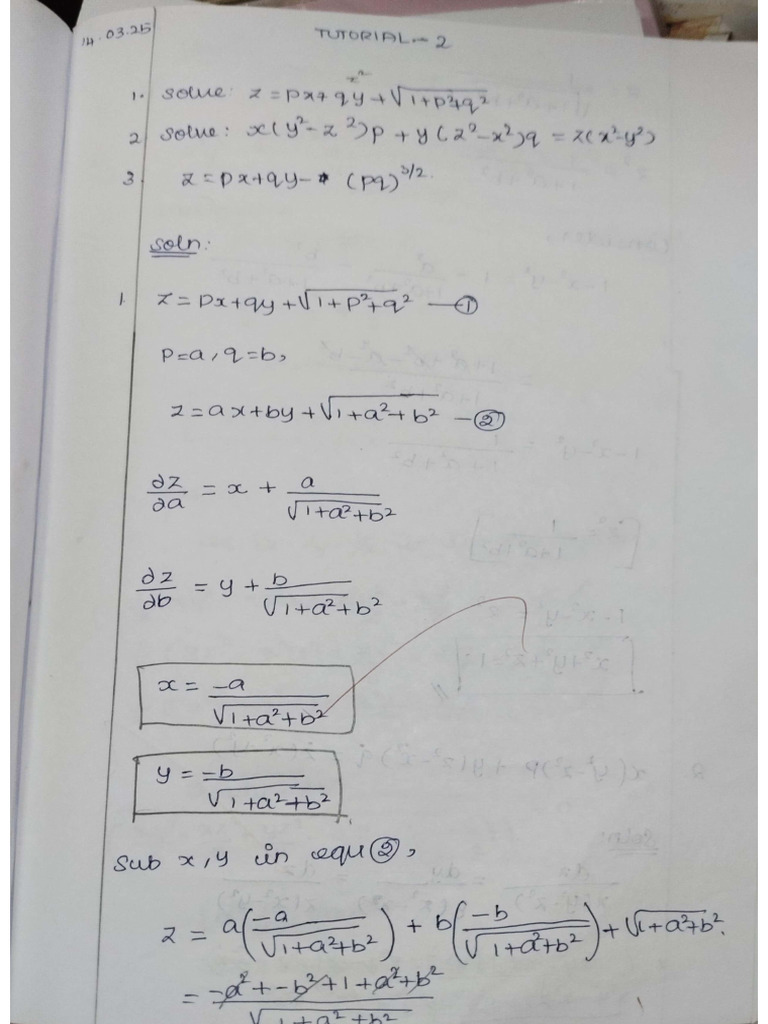 14.03.25
TUTORIAL - 2
1. solve: z = px + qy + √1+p²+q²
2 solve: x(y²-z²)p + y(z²-x²)q = z(x²-y²)
3. z = px + qy - (pq)^3/2.
soln:
1. z = px + qy + √1+p²+q² — ①
p=a, q=b,
z = ax + by + √1+a²+b² — ②
∂z/∂a = x + a/√1+a²+b²
∂z/∂b = y + b/√1+a²+b²
x = -a/√1+a²+b²
y = -b/√1+a²+b²
sub x, y in equ ②,
z = a(-a/√1+a²+b²) + b(-b/√1+a²+b²) + √1+a²+b².
= -a² + -b² + 1 + a² + b²/√1+a²+b²